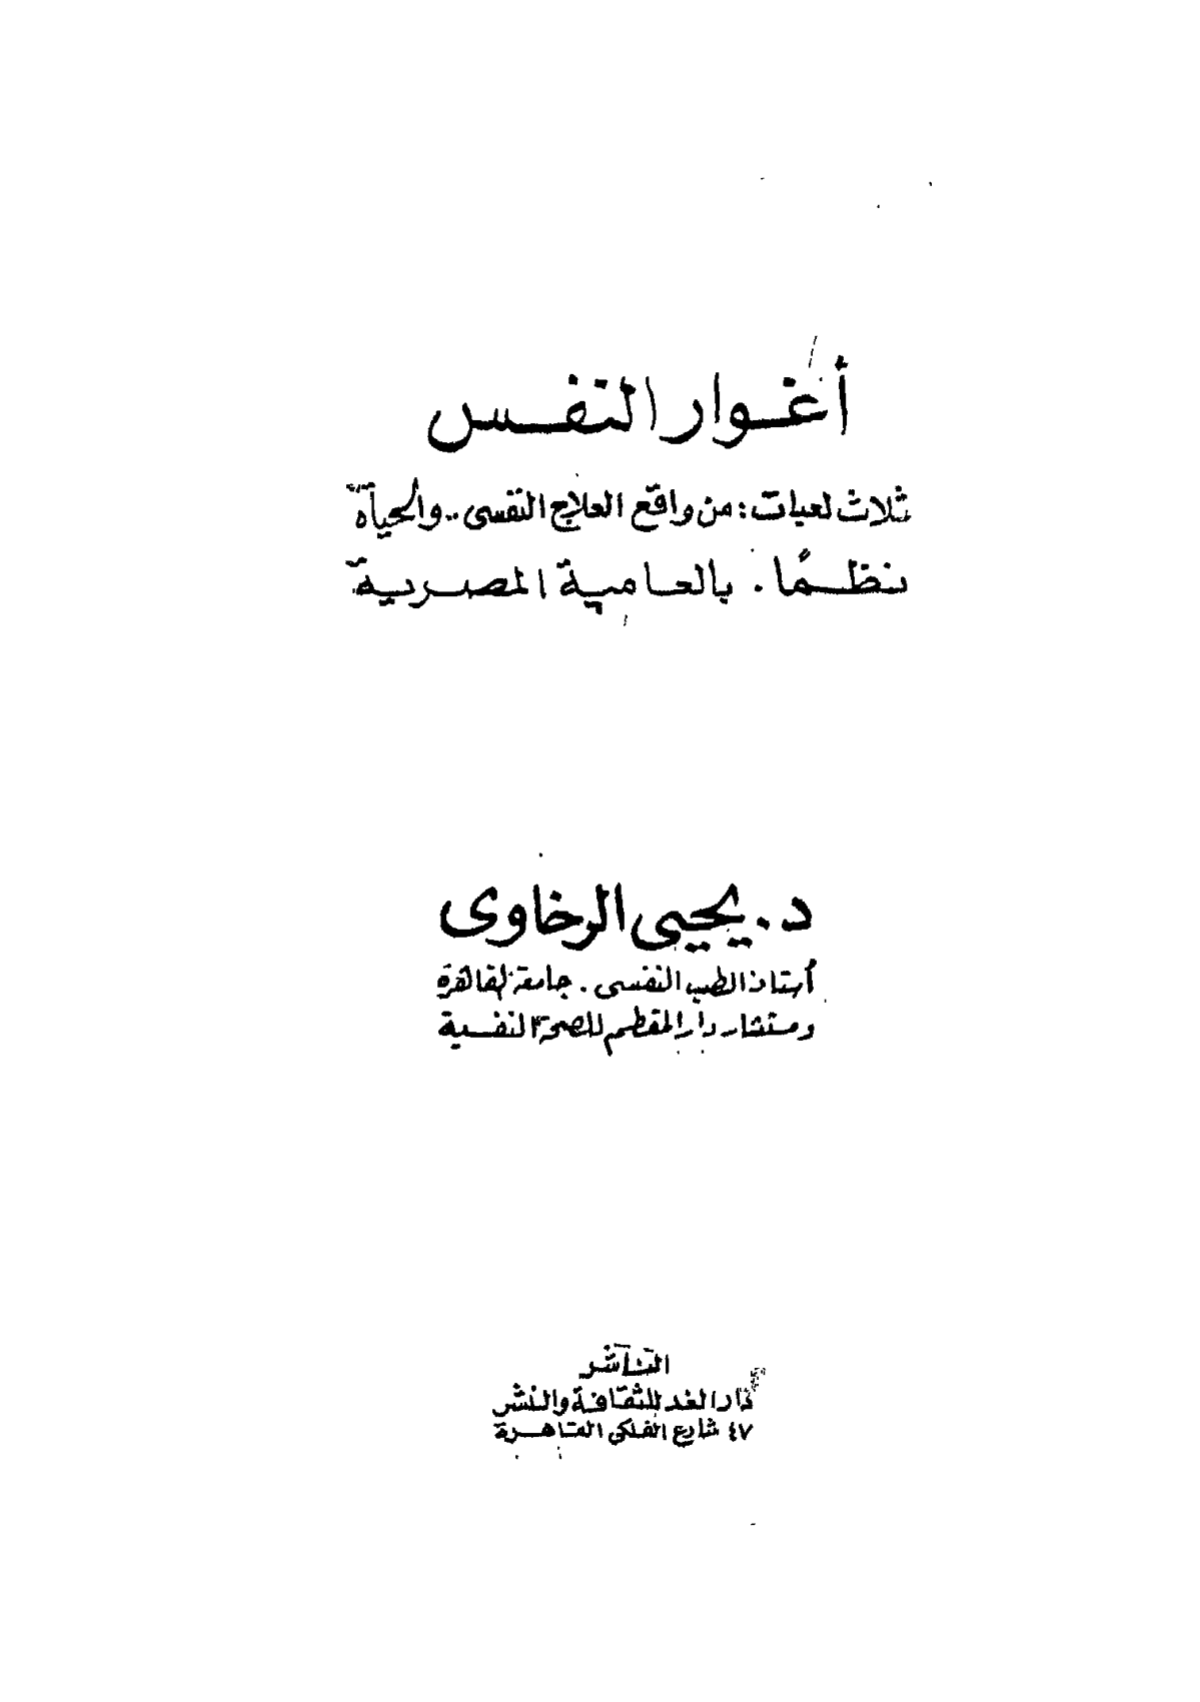 أغوار النفس
ثلاث لعبات: من واقع العلاج النفسى.. والحياة
نظمًا. بالعامية المصرية
د. يحيى الرخاوى
أستاذ الطب النفسى. جامعة القاهرة
ومستشار دار المقطم للصحة النفسية
الناشر
دار الغد للثقافة والنشر
٤٧ شارع الفلكى القاهرة